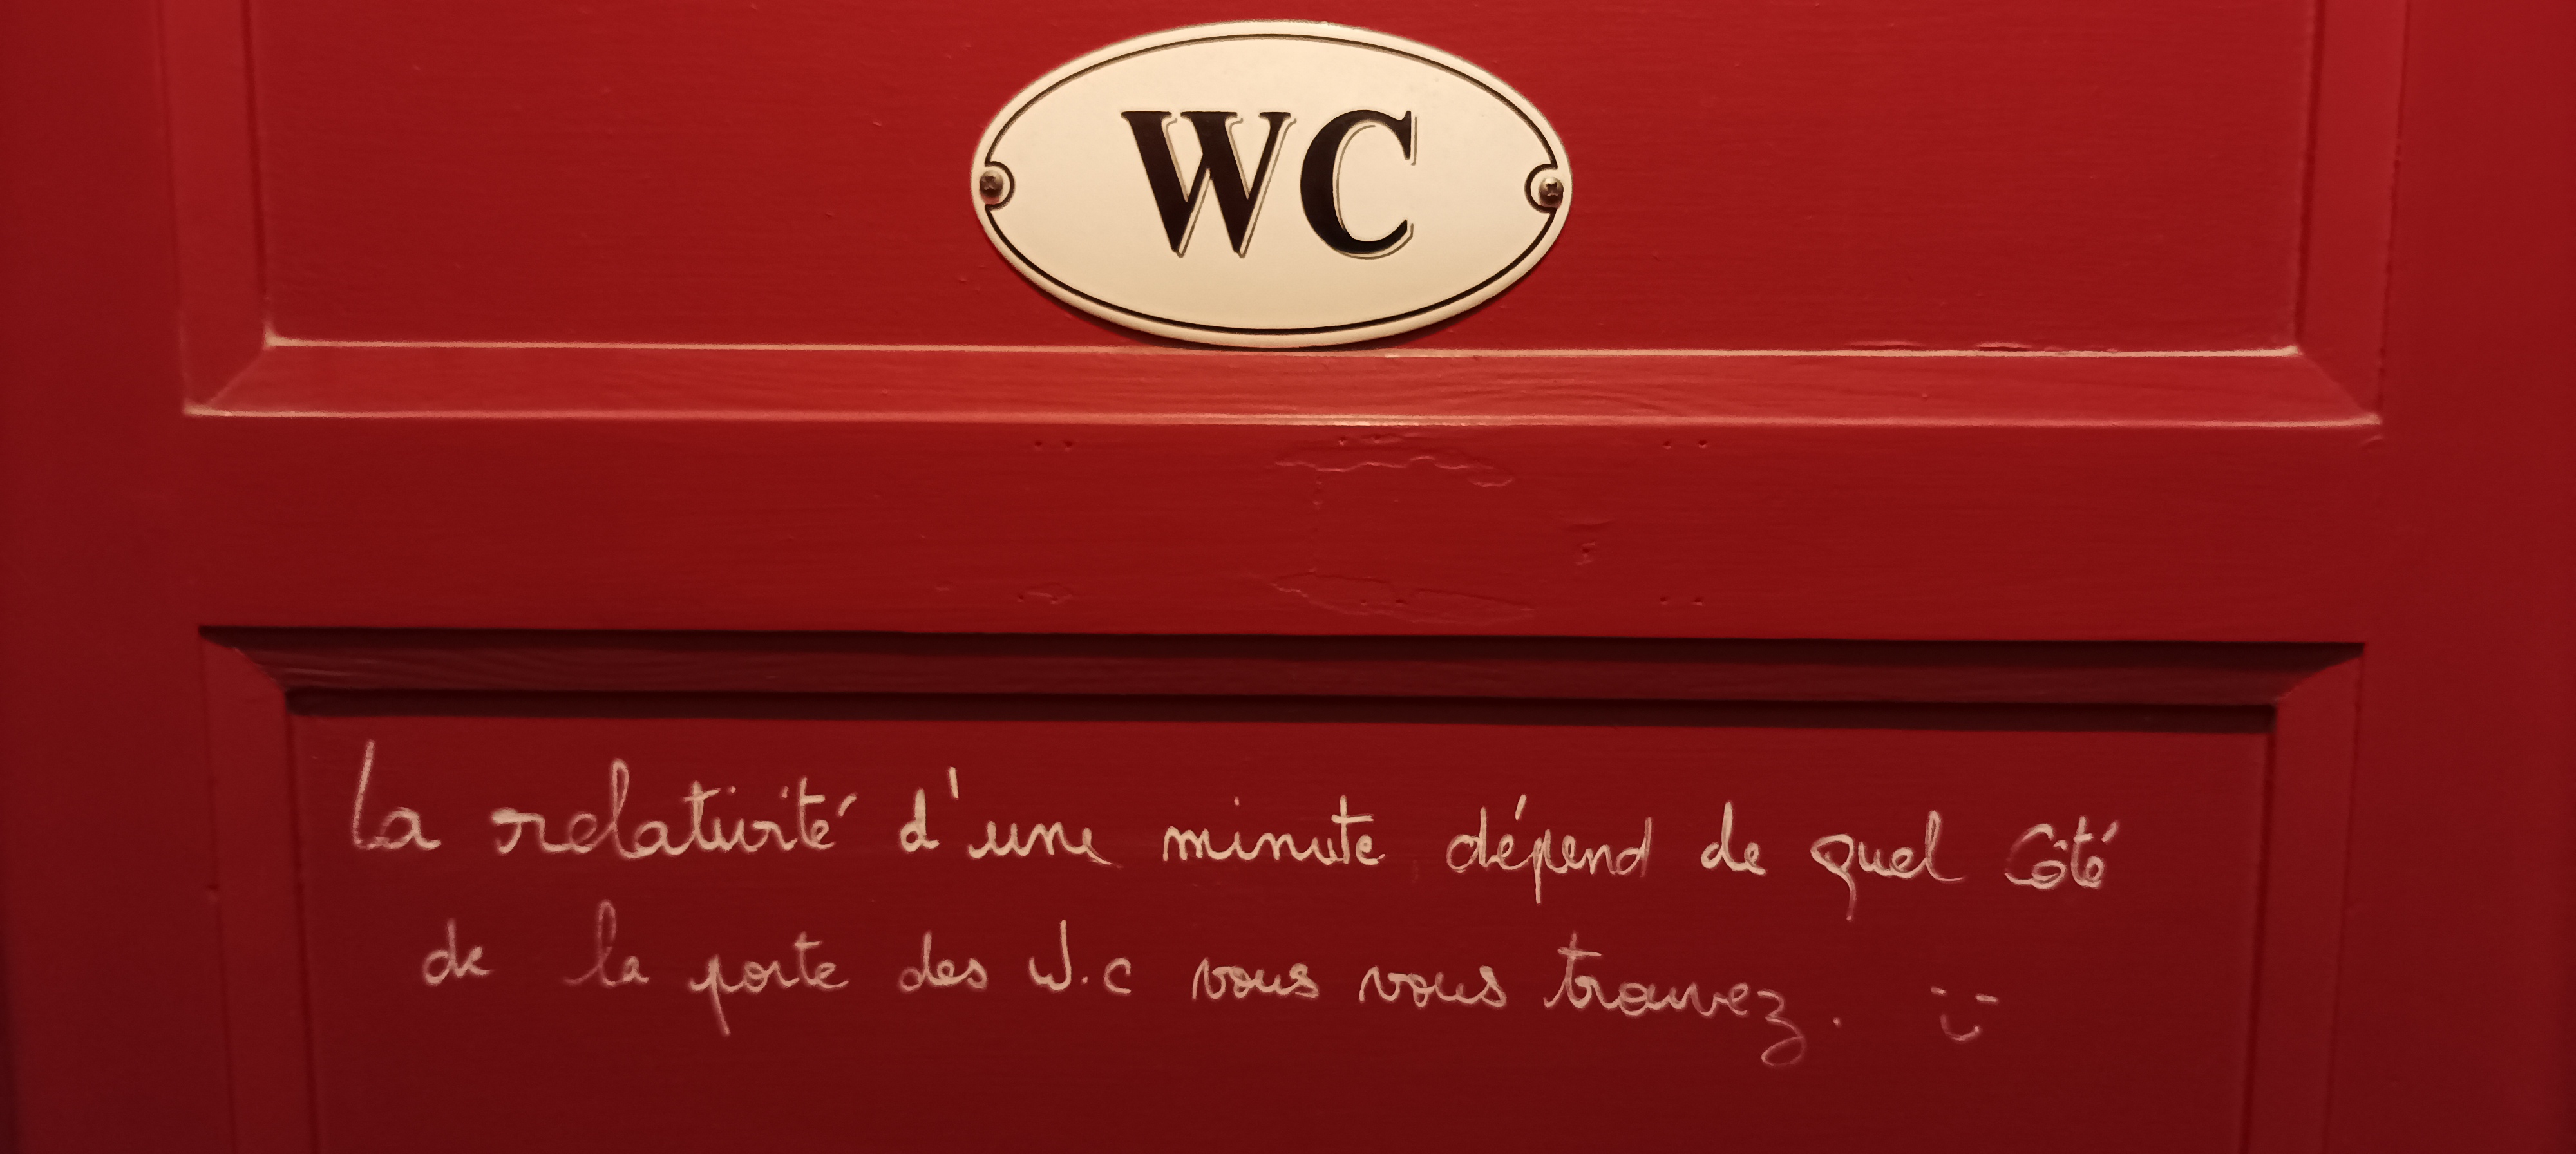 WC
La relativité d'une minute dépend de quel Côté
de la porte des W.c vous vous trouvez. :-)